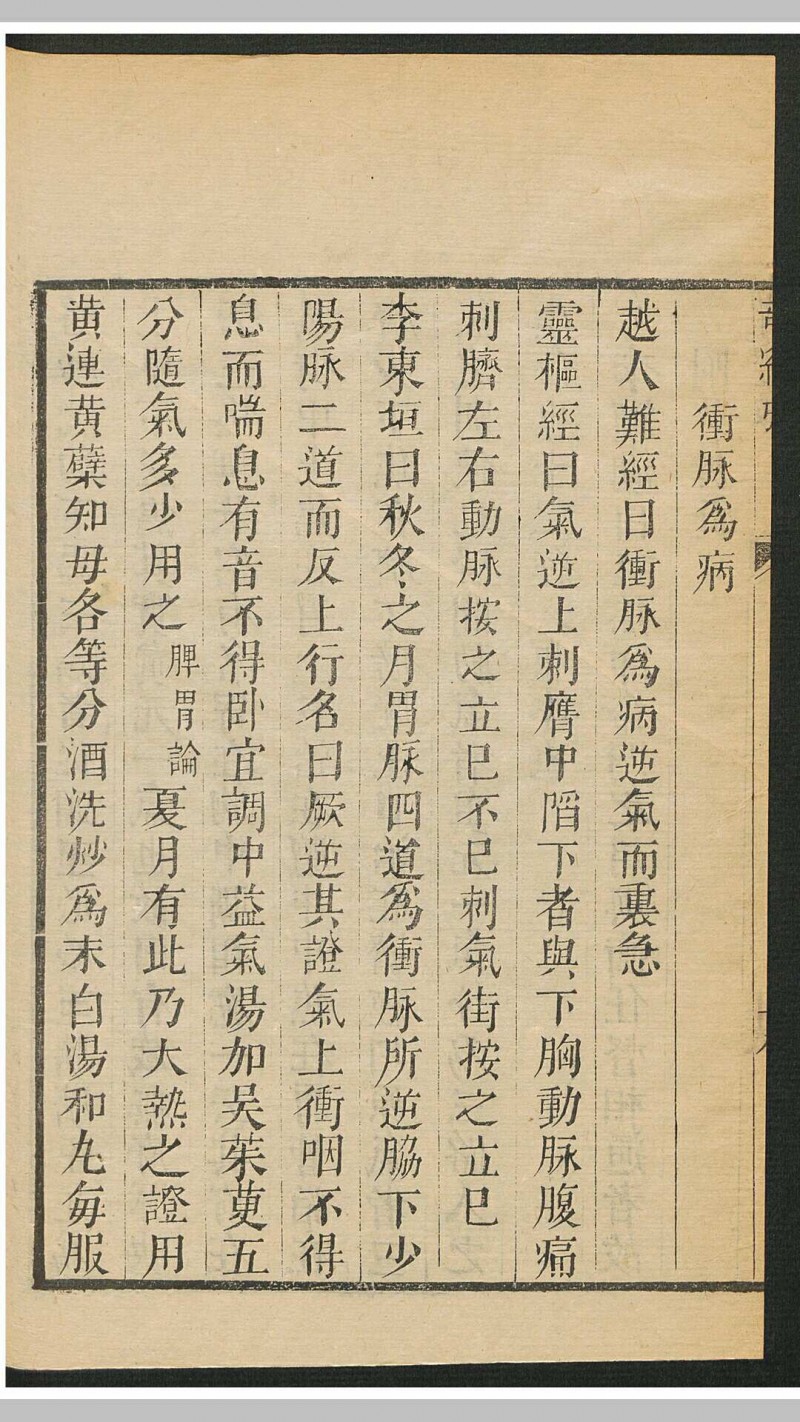 衝脉爲病
越人難經曰衝脉爲病逆氣而裏急
靈樞經曰氣逆上刺膺中陷下者與下胸動脉腹痛
刺臍左右動脉按之立已不已刺氣街按之立已
李東垣曰秋冬之月胃脉四道爲衝脉所逆脇下少
陽脉二道而反上行名曰厥逆其證氣上衝咽不得
息而喘息有音不得卧宜調中益氣湯加吴茱萸五
分隨氣多少用之脾胃論夏月有此乃大熱之證用
黄連黄蘗知毋各等分酒洗炒爲末白湯和丸每服